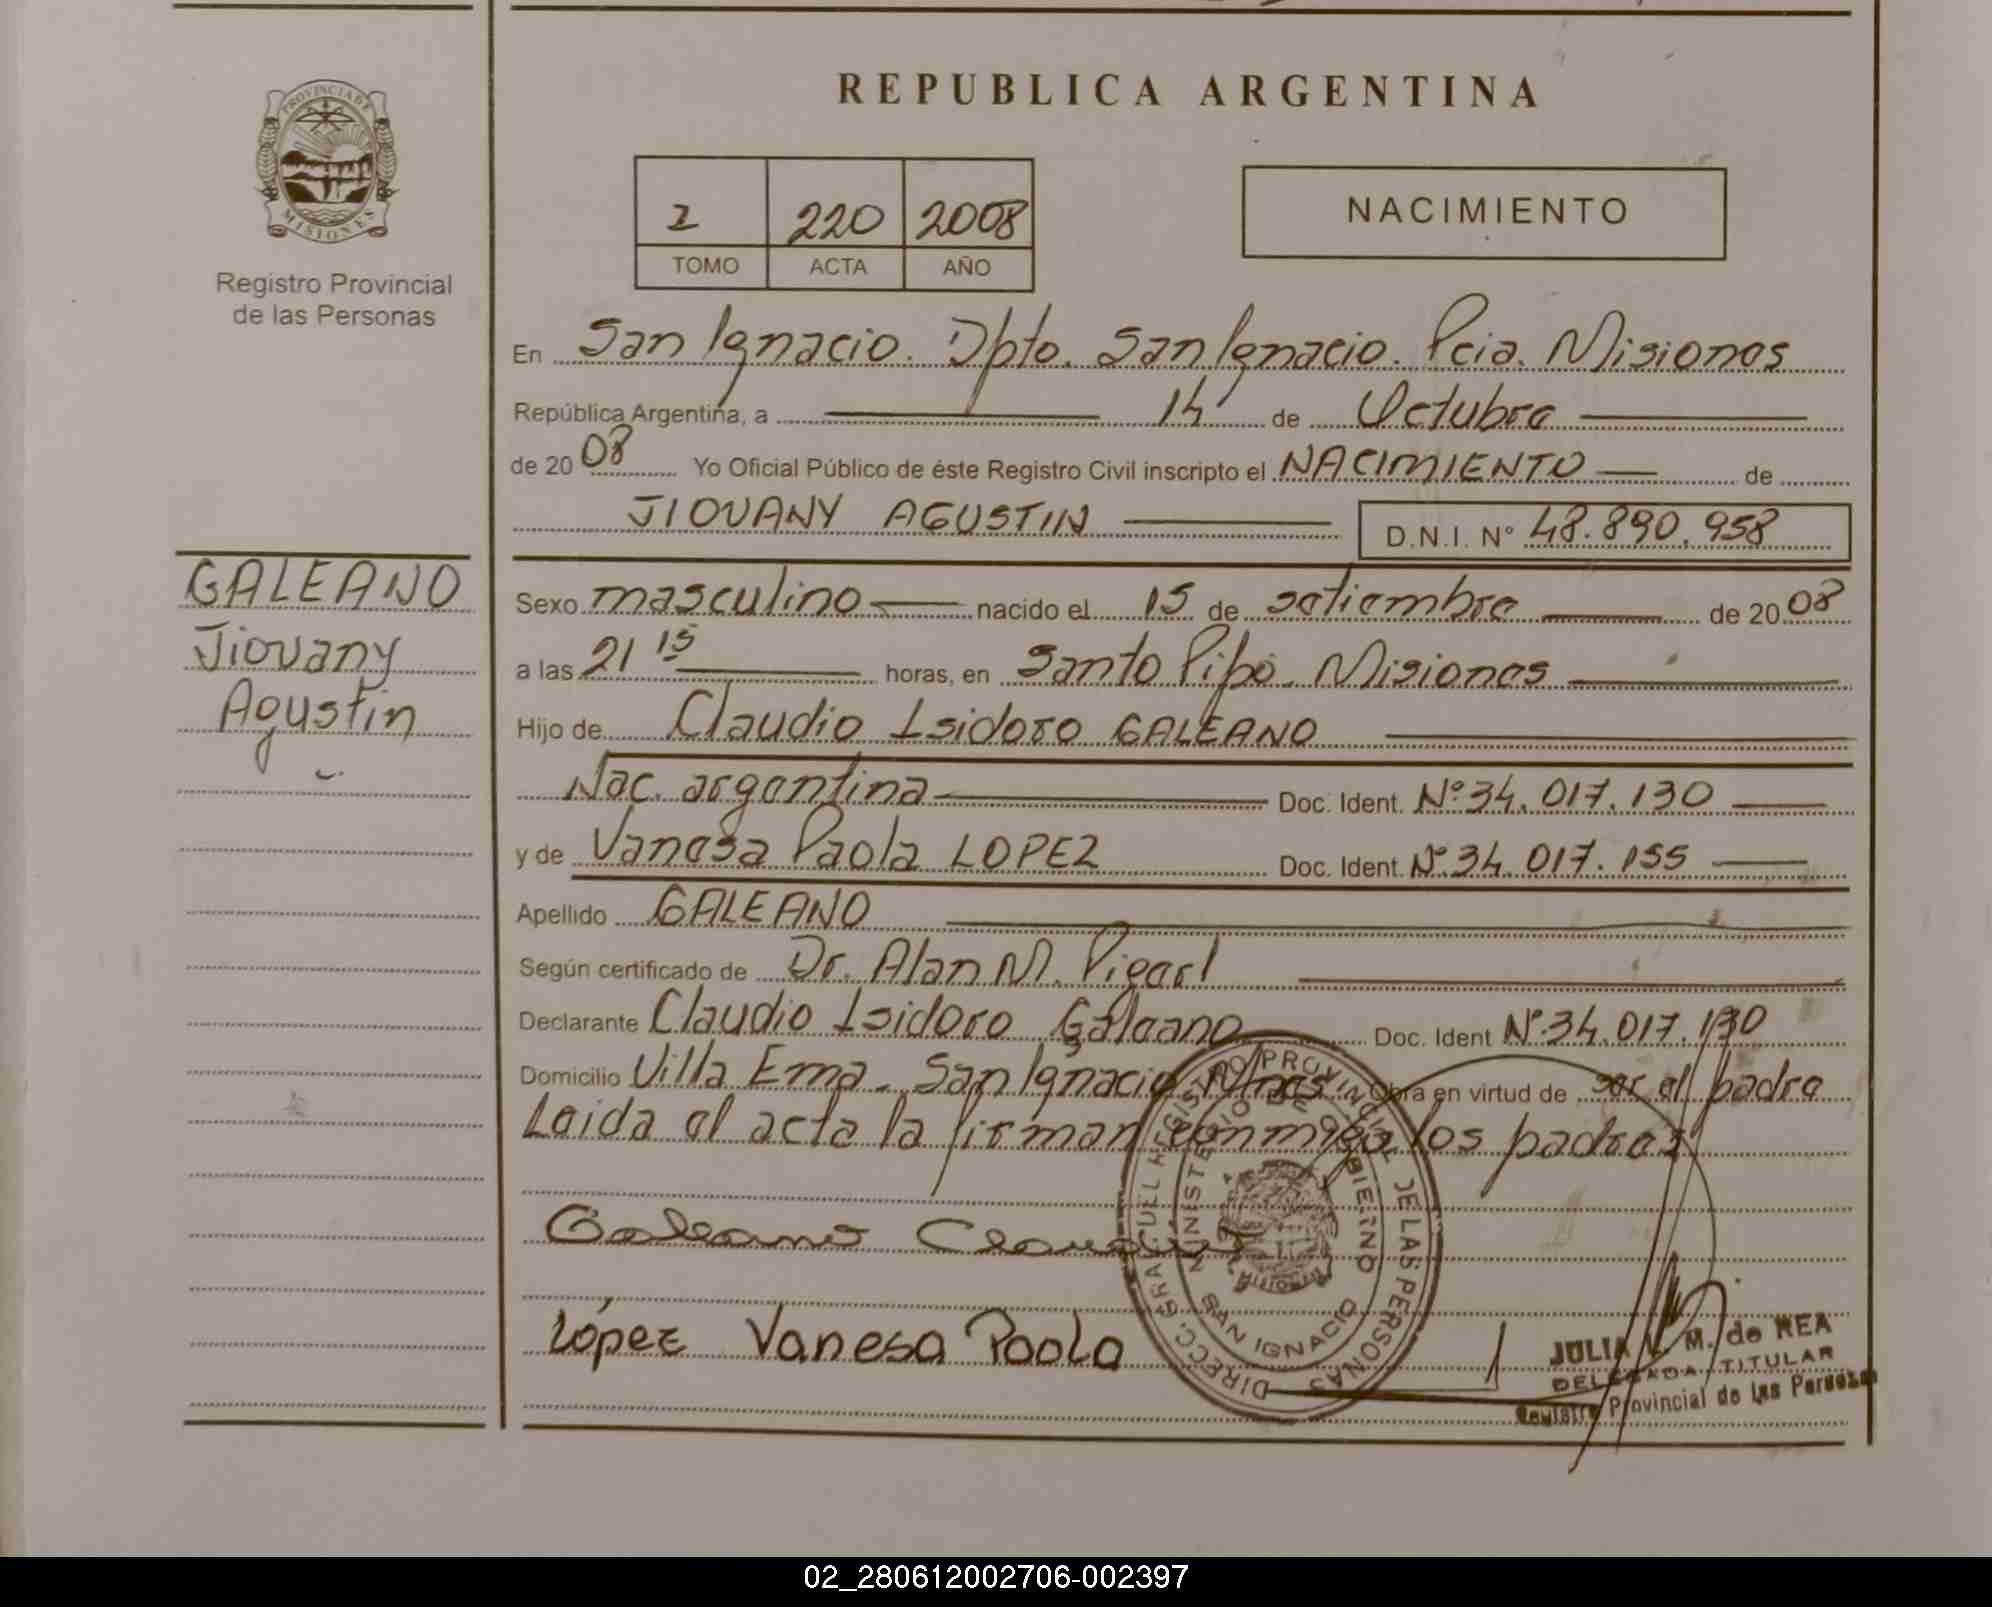 REPUBLICA ARGENTINA
PROVINCIA DE
MISIONES
Registro Provincial
de las Personas
2 220 2008
TOMO ACTA AÑO
NACIMIENTO
En San Ignacio. Dpto. San Ignacio. Pcia. Misiones
República Argentina, a 14 de Octubre
de 20 08 Yo Oficial Público de éste Registro Civil inscripto el NACIMIENTO de
JIOVANY AGUSTIN D.N.I. N° 48.890.958
GALEANO
Jiovany
Agustin
Sexo masculino nacido el 15 de setiembre de 20 08
a las 21 15 horas, en Santo Pipó. Misiones
Hijo de Claudio Isidoro GALEANO
Nac. argentina Doc. Ident. N° 34.017.130
y de Vanesa Paola LOPEZ Doc. Ident. N° 34.017.155
Apellido GALEANO
Según certificado de Dr. Alan M.
Declarante Claudio Isidoro Galeano Doc. Ident N° 34.017.130
Domicilio Villa Ema - San Ignacio Mnes. Obra en virtud de ser el padre
Leida el acta la firman conmigo los padres
Galeano Claudio
López Vanesa Paola
DIRECC. GRAL. DEL REGISTRO PROVINCIAL DE LAS PERSONAS
MINISTERIO DE GOBIERNO
SAN IGNACIO
JULIA V. M. de REA
DELEGADA TITULAR
Registro Provincial de las Personas
02_280612002706-002397